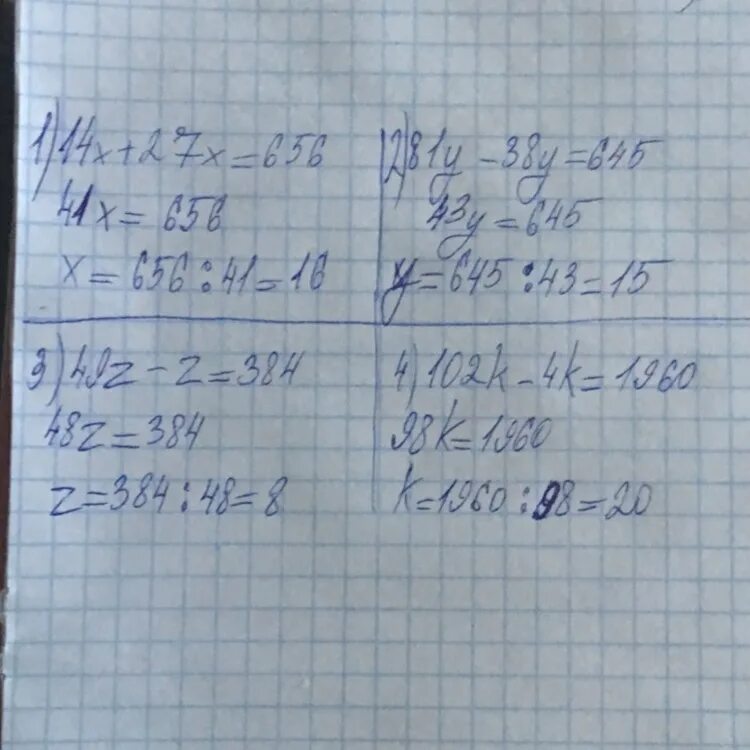 1) 14x+27x=656
41x=656
x=656:41=16
2) 81y-38y=645
43y=645
y=645:43=15
3) 49z-z=384
48z=384
z=384:48=8
4) 102k-4k=1960
98k=1960
k=1960:98=20